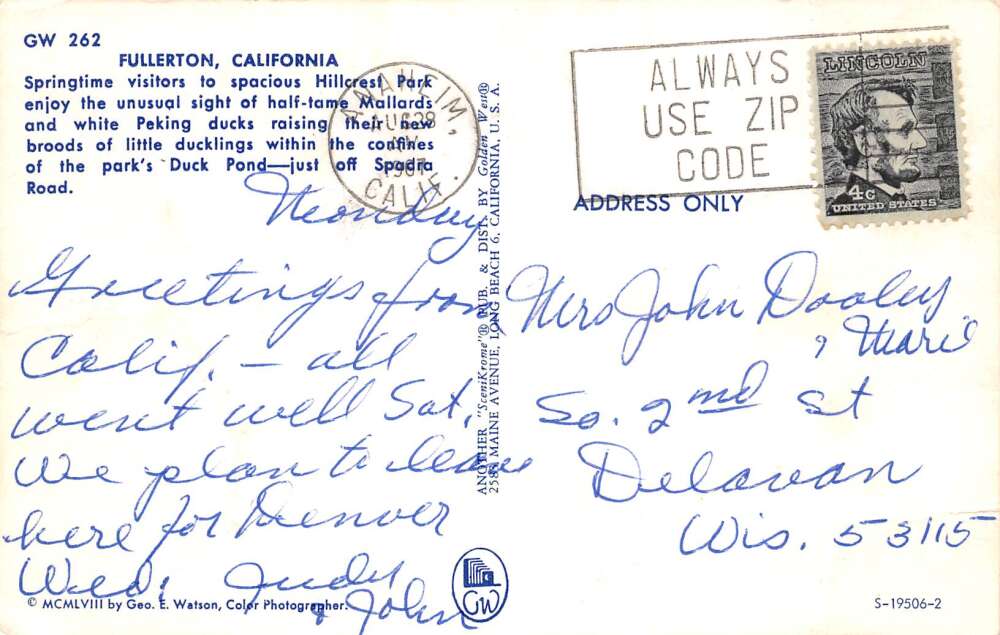 GW 262
FULLERTON, CALIFORNIA
Springtime visitors to spacious Hillcrest Park
enjoy the unusual sight of half-tame Mallards
and white Peking ducks raising their new
broods of little ducklings within the confines
of the park's Duck Pond—just off Spadra
Road.
ANAHEIM,
AUG 28
1967
CALIF.
ALWAYS
USE ZIP
CODE
LINCOLN
4c
UNITED STATES
ADDRESS ONLY
Monday
Greetings from
Calif. - all
went well Sat.
We plan to leave
here for Denver
Wed. Judy
& John
ANOTHER "SceniKrome"® PUB. & DIST. BY Golden West®
2588 MAINE AVENUE, LONG BEACH 6, CALIFORNIA, U. S. A.
Mrs John Dooley
, Marie
So. 2nd St
Delavan
Wis. 53115
GW
© MCMLVIII by Geo. E. Watson, Color Photographer.
S-19506-2